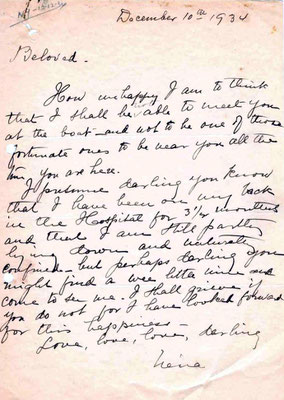 December 10th 1934
Beloved -
How unhappy I am to think
that I shall be able to meet you
at the boat - and not to be one of those
fortunate ones to be near you all the
time you are here.
I presume darling you know
that I have been on my back
in the Hospital for 3 1/2 months
and that I am still partly
lying down and naturally
confined - but perhaps darling you
might find a wee and
come to see me. I shall grieve if
you do not for I have looked forward
for this happiness -
Love, love, love, darling